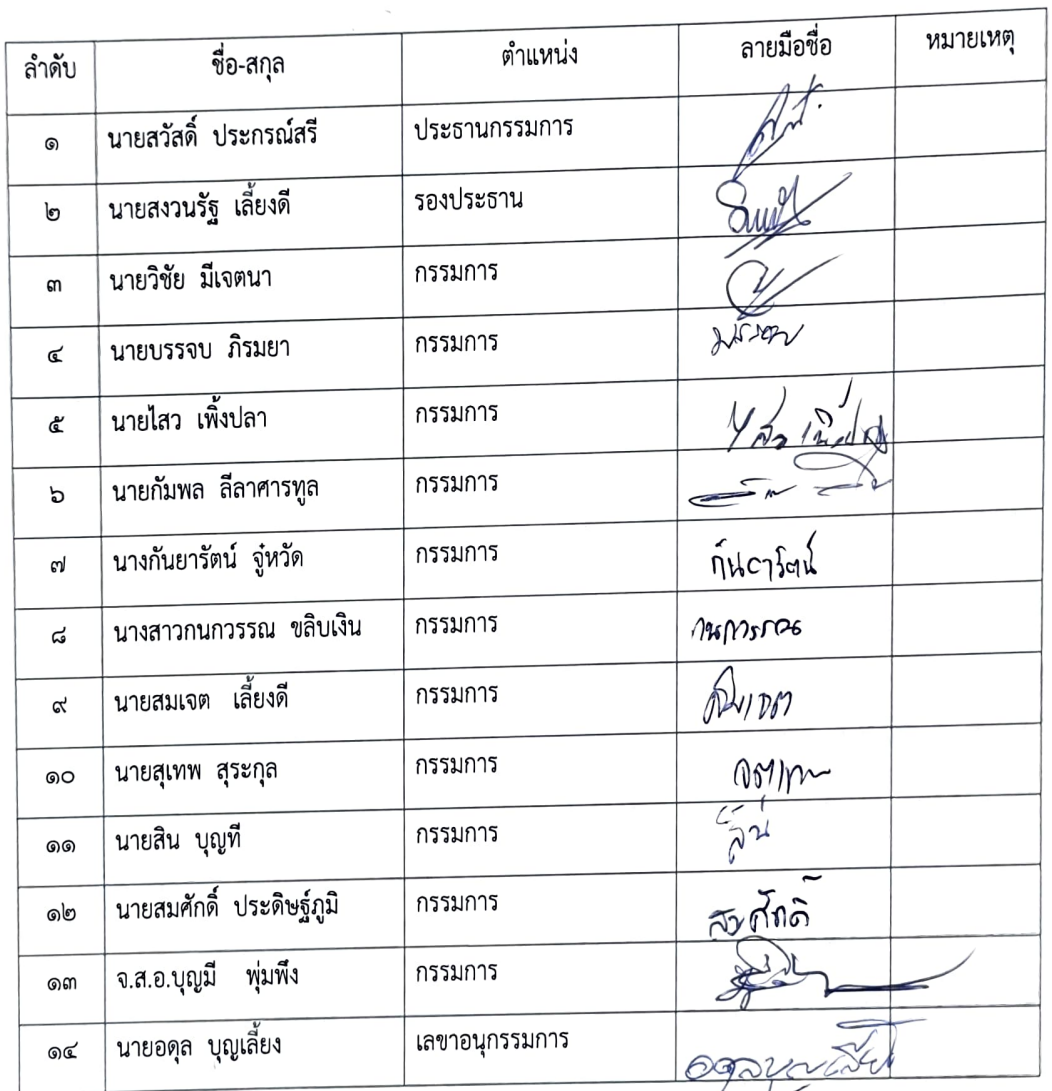 ลำดับ ชื่อ-สกุล ตำแหน่ง ลายมือชื่อ หมายเหตุ
๑ นายสวัสดิ์ ประกรณ์สรี ประธานกรรมการ
๒ นายสงวนรัฐ เลี้ยงดี รองประธาน
๓ นายวิชัย มีเจตนา กรรมการ
๔ นายบรรจบ ภิรมยา กรรมการ บรรจบ
๕ นายไสว เพิ้งปลา กรรมการ ไสว เพิ้งปลา
๖ นายกัมพล ลีลาศารทูล กรรมการ
๗ นางกันยารัตน์ จู๋หวัด กรรมการ กันยารัตน์
๘ นางสาวกนกวรรณ ขลิบเงิน กรรมการ กนกวรรณ
๙ นายสมเจต เลี้ยงดี กรรมการ สมเจต
๑๐ นายสุเทพ สุระกุล กรรมการ
๑๑ นายสิน บุญที กรรมการ สิน
๑๒ นายสมศักดิ์ ประดิษฐ์ภูมิ กรรมการ สมศักดิ์
๑๓ จ.ส.อ.บุญมี พุ่มพึง กรรมการ
๑๔ นายอดุล บุญเลี้ยง เลขาอนุกรรมการ อดุล บุญเลี้ยง